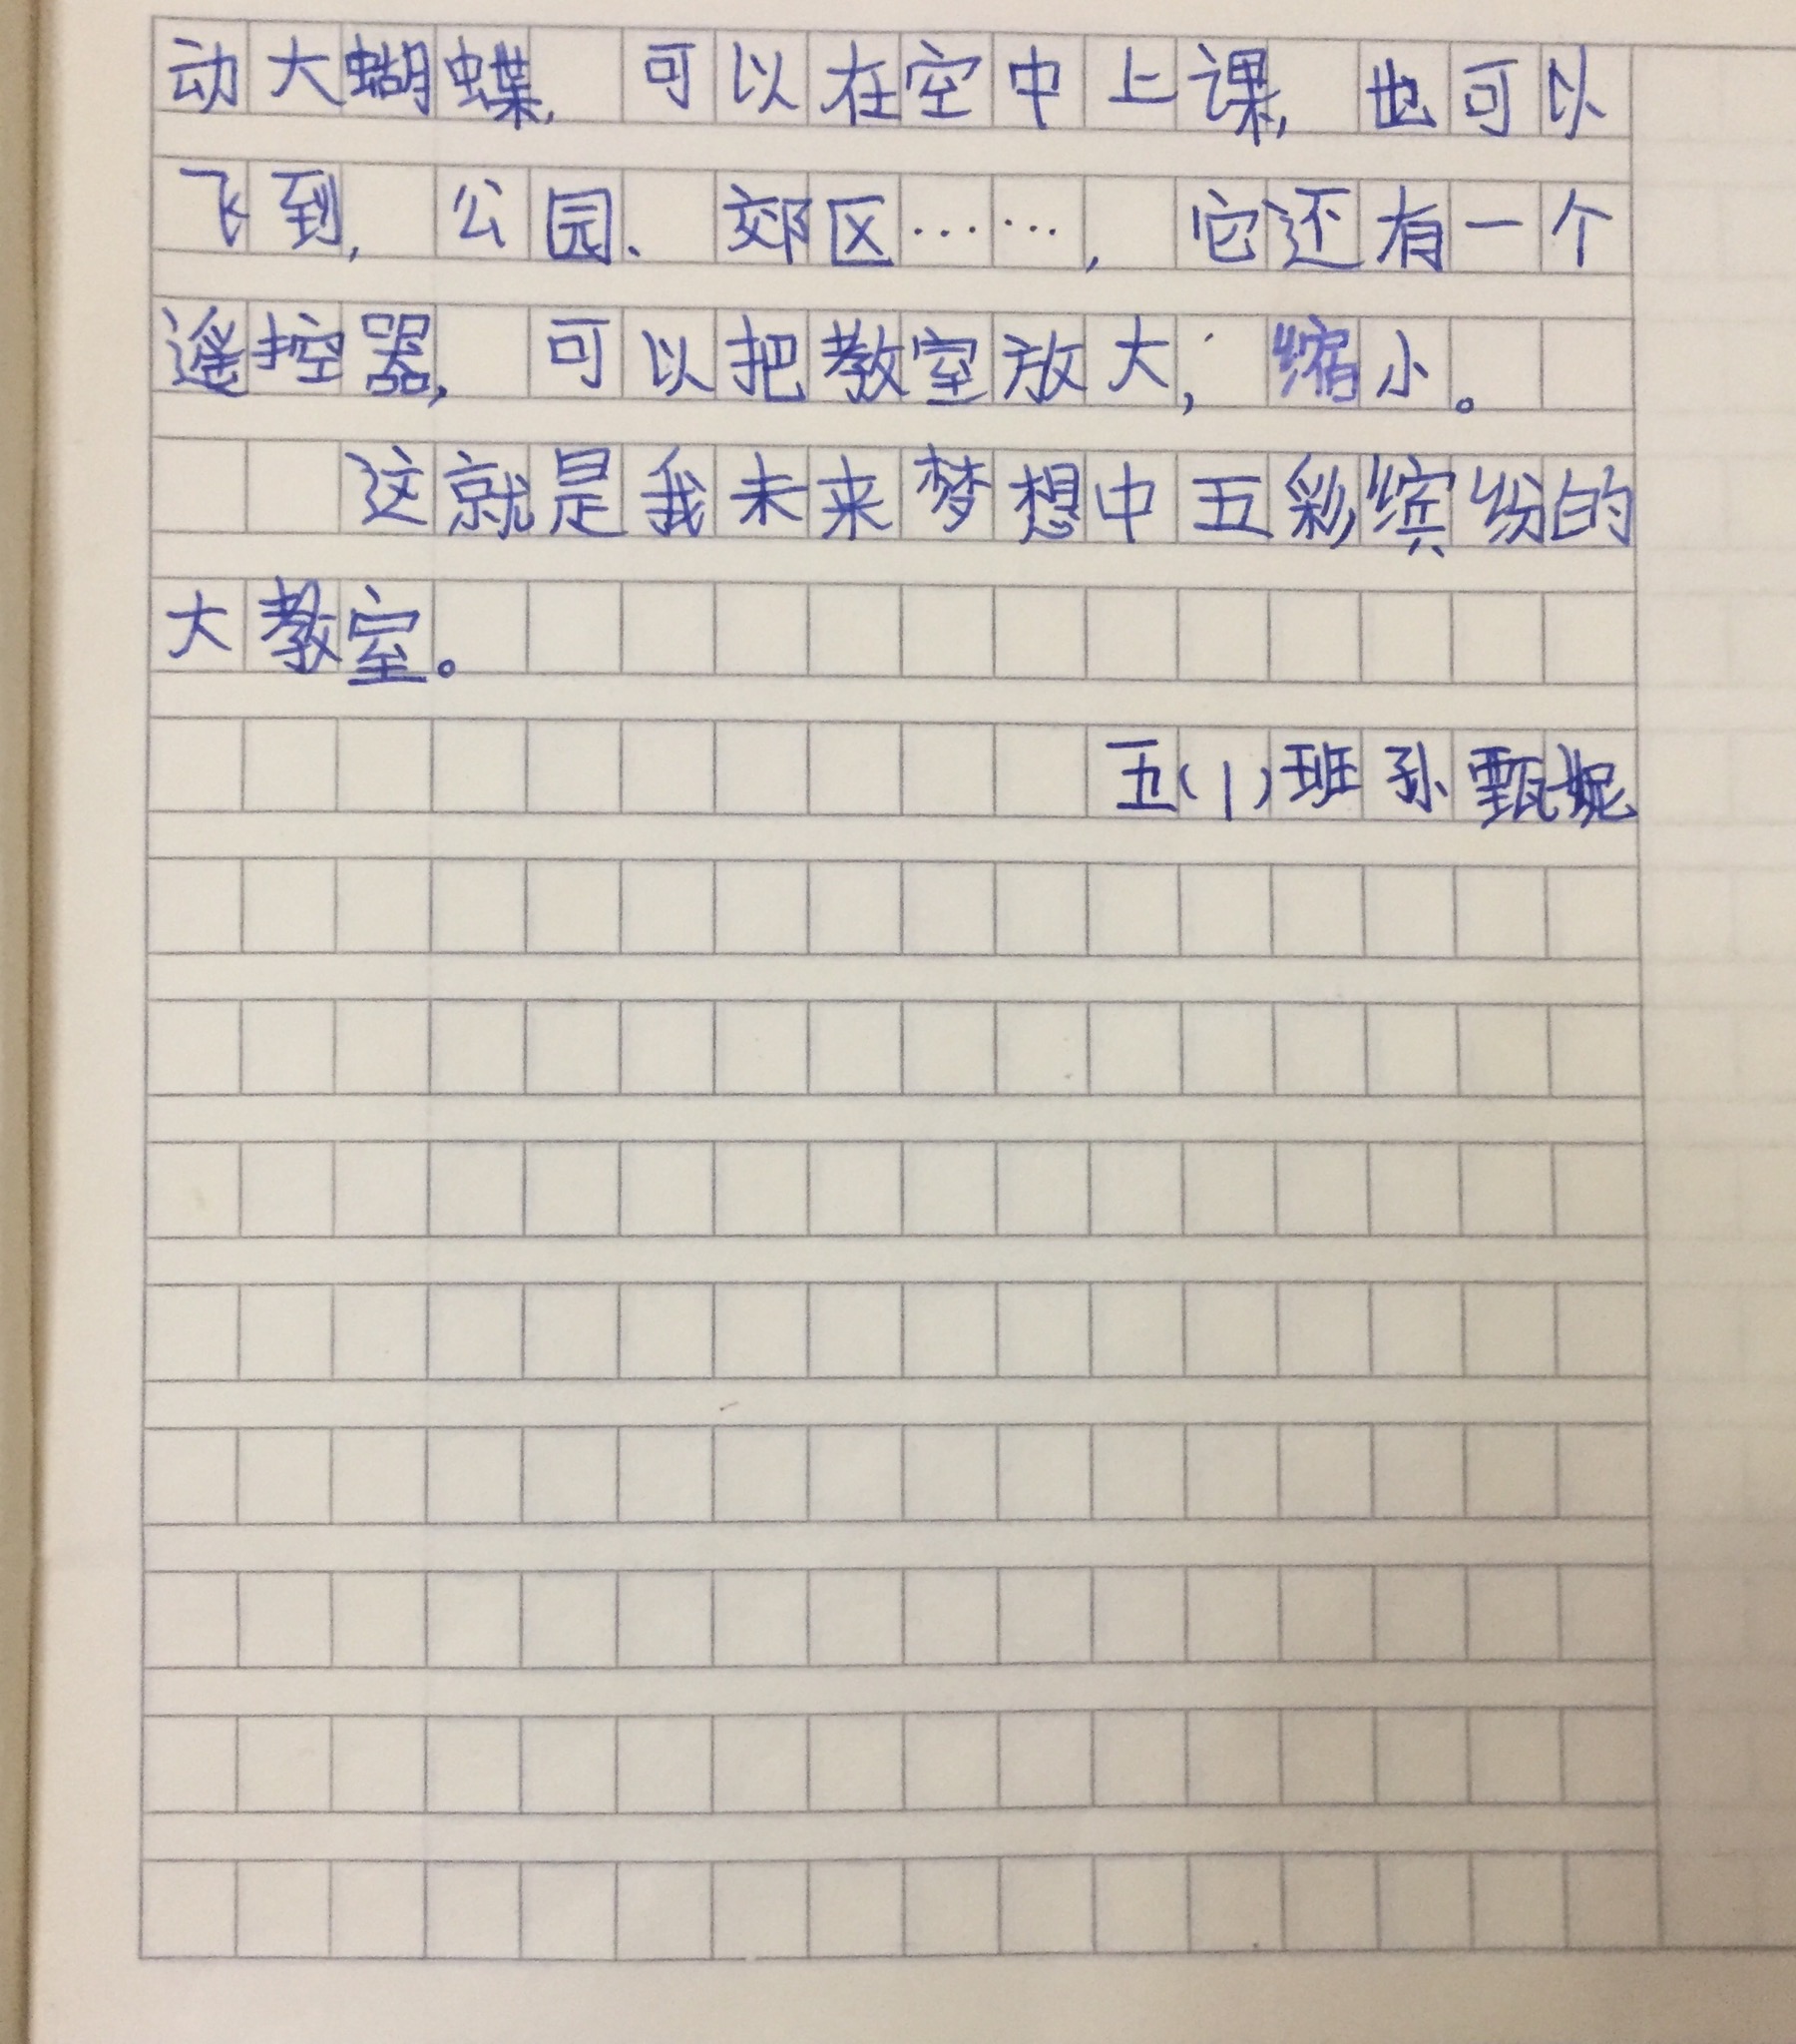 动大蝴蝶，可以在空中上课，也可以
飞到，公园、郊区……，它还有一个
遥控器，可以把教室放大，缩小。
这就是我未来梦想中五彩缤纷的
大教室。
五(1)班孙甄妮